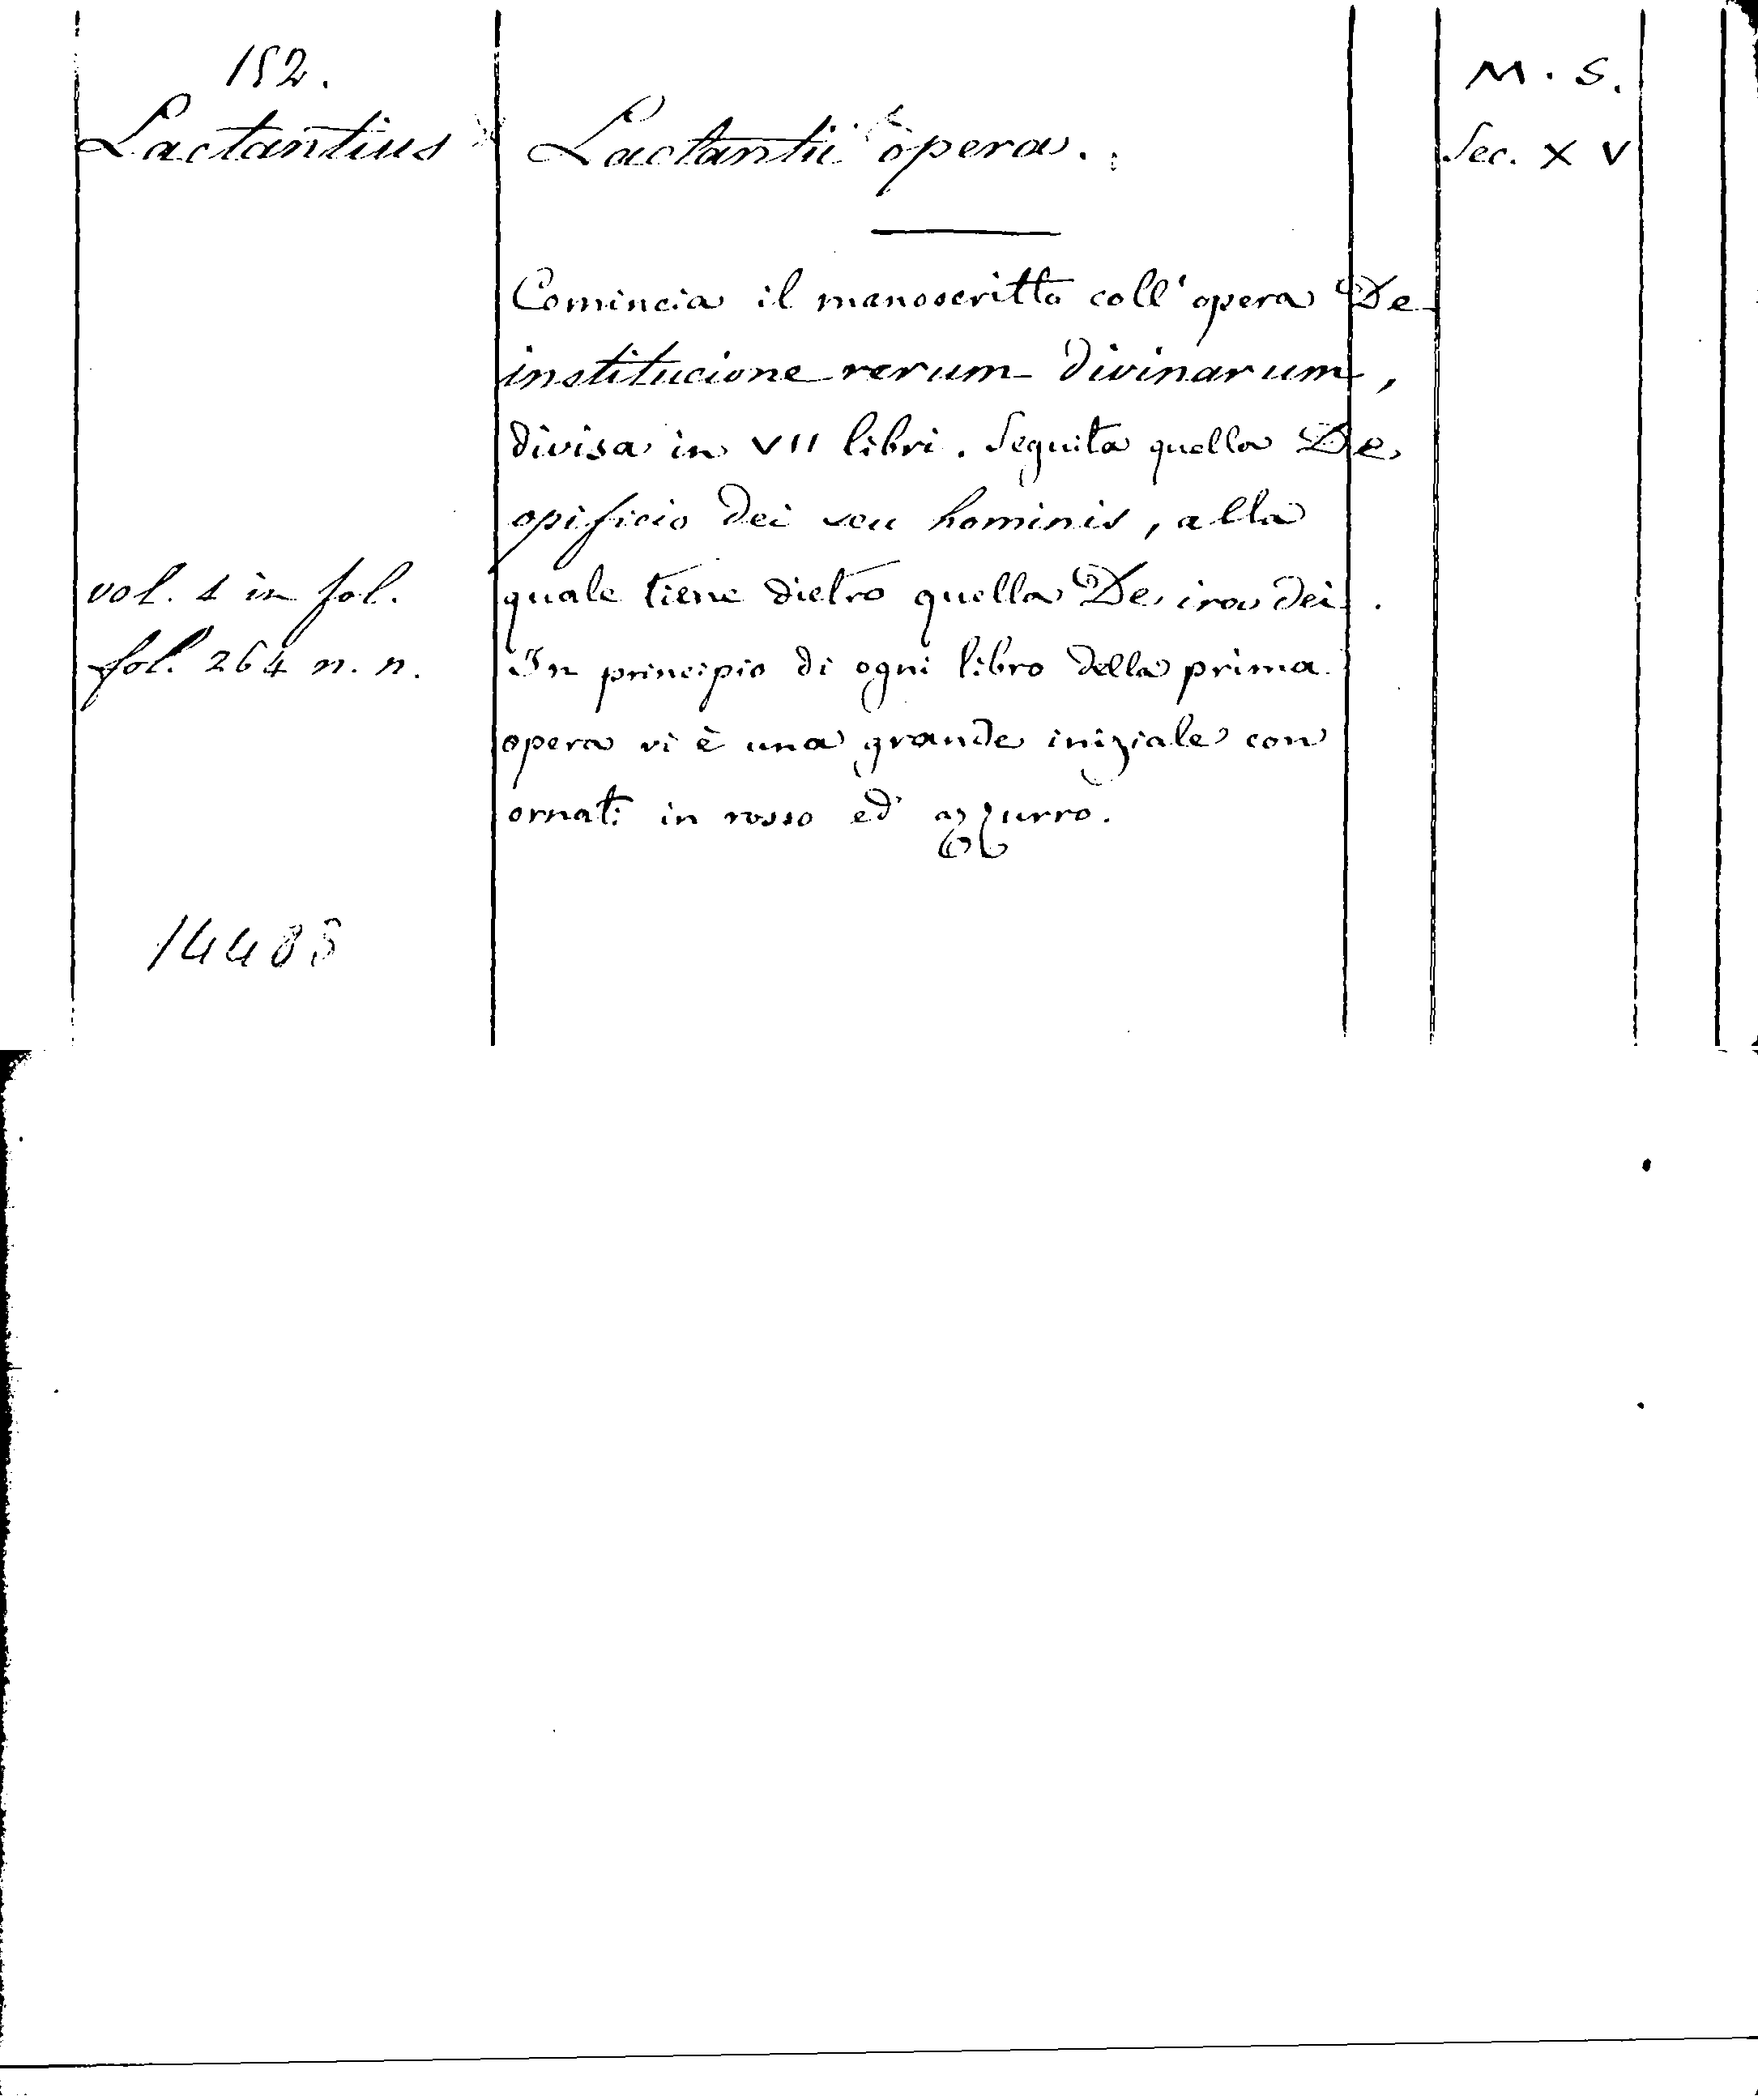 152.
M. S.
Lactantius
Lactantii opera.
Sec. XV
Comincia il manoscritto coll'opera De
institucione rerum divinarum,
divisa in VII libri. Seguita quella De
opificio dei seu hominis, alla
quale tiene dietro quella De ira dei.
In principio di ogni libro della prima
opera vi è una grande iniziale con
ornati in rosso ed azzurro.
vol. 1 in fol.
fol. 264 n. n.